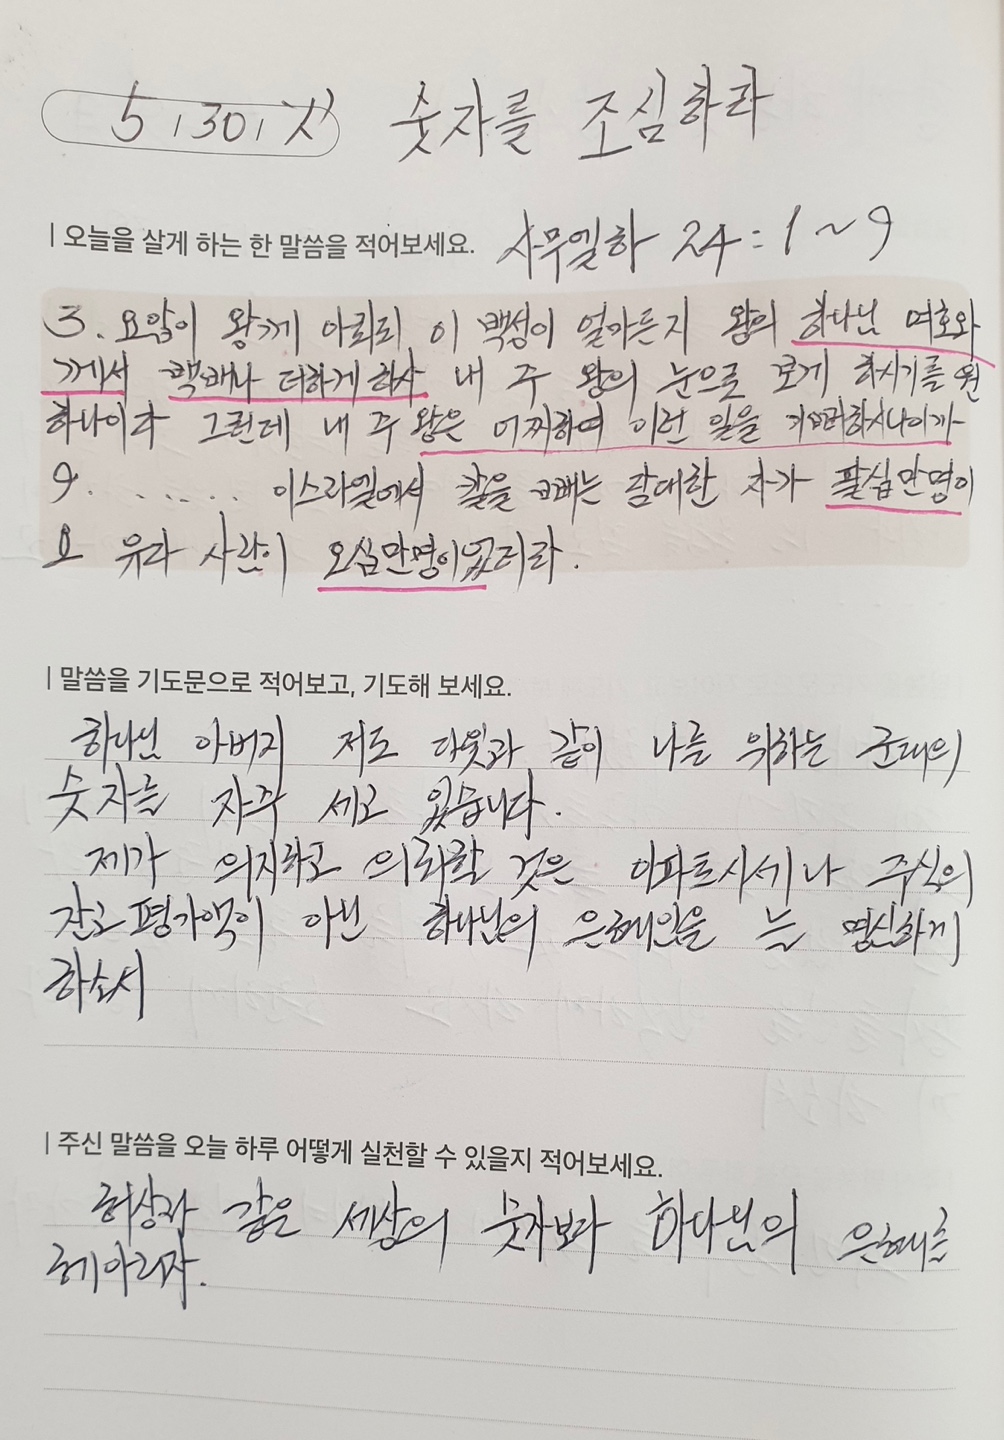 5 , 30 , 싸 숫자를 조심하라
| 오늘을 살게 하는 한 말씀을 적어보세요. 사무엘하 24 : 1 ~ 9
3. 요압이 왕께 아뢰되 이 백성이 얼마든지 왕의 하나님 여호와
께서 백배나 더하게 하사 내 주 왕의 눈으로 보게 하시기를 원
하나이다 그런데 내 주 왕은 어찌하여 이런 일을 기뻐하시나이까
9. ...... 이스라엘에서 칼을 빼는 담대한 자가 팔십만명이
요 유다 사람이 오십만명이었더라.
| 말씀을 기도문으로 적어보고, 기도해 보세요.
하나님 아버지 저도 다윗과 같이 나를 위하는 군대의
숫자를 자주 세고 있습니다.
제가 의지하고 의뢰할 것은 아파트시세나 주식의
잔고평가액이 아닌 하나님의 은혜임을 늘 명심하게
하소서
| 주신 말씀을 오늘 하루 어떻게 실천할 수 있을지 적어보세요.
허상과 같은 세상의 숫자보다 하나님의 은혜를
헤아리자.